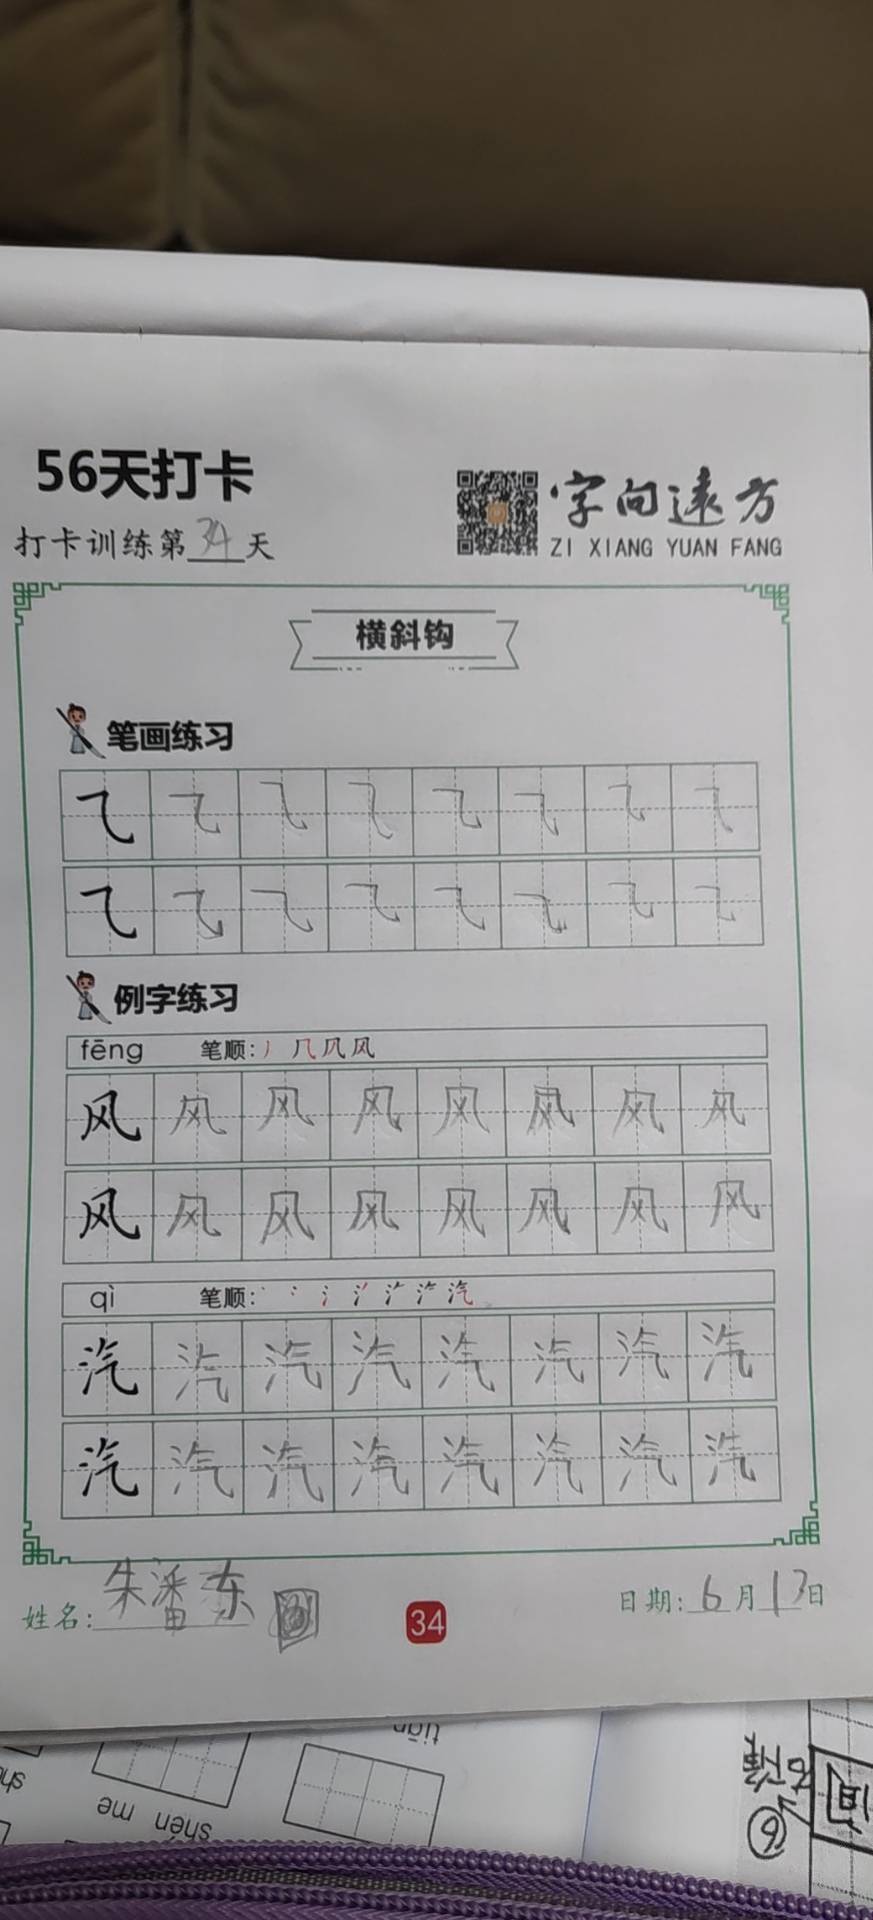 56天打卡
打卡训练第34天
字向远方
ZI XIANG YUAN FANG
横斜钩
笔画练习
⺄ ⺄ ⺄ ⺄ ⺄ ⺄ ⺄ ⺄
⺄ ⺄ ⺄ ⺄ ⺄ ⺄ ⺄ ⺄
例字练习
fēng 笔顺:丿 几 凤 风
风 风 风 风 风 风 风 风
风 风 风 风 风 风 风 风
qì 笔顺:
汽 汽 汽 汽 汽 汽 汽 汽
汽 汽 汽 汽 汽 汽 汽 汽
姓名:朱潘东
34
日期:6月13日
tiān
shén me
shén
⑥